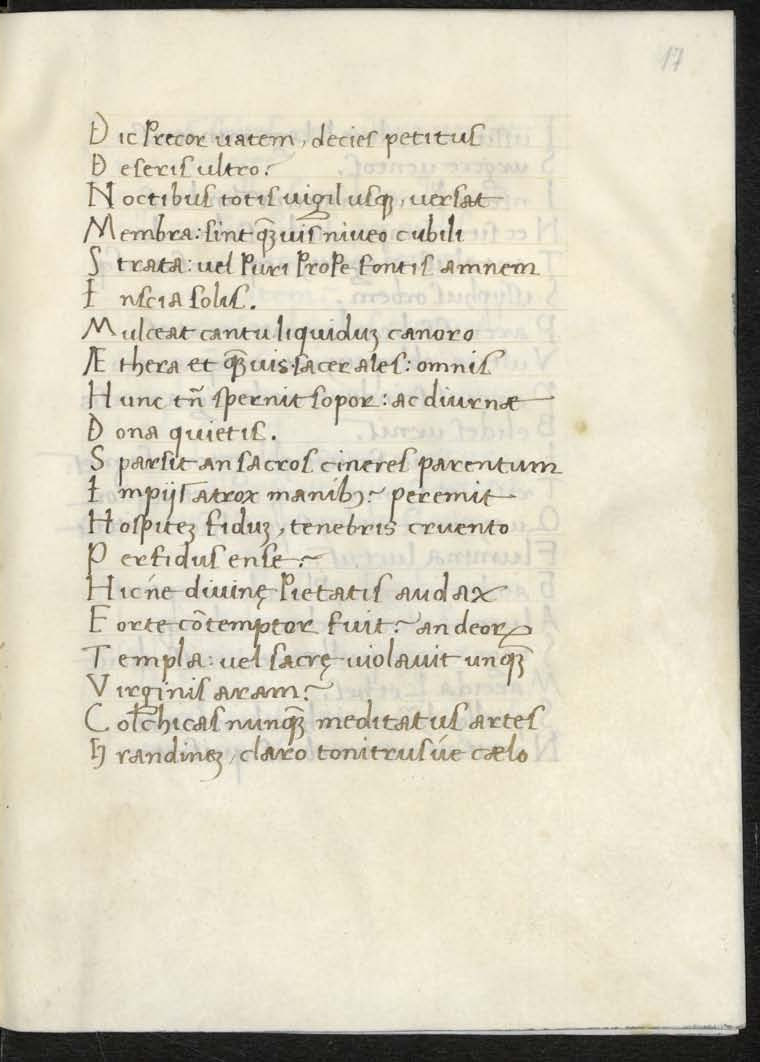 17
Dic precor uatem, decies petitus
Deseris ultro?
Noctibus totis uigil usq, uersat
Membra: sint q̃uis niueo cubili
Strata: uel puri prope fontis amnem
Inscia solis.
Mulceat cantu liquiduȝ canoro
Æthera et q̃uis sacer ales: omnis
Hunc tñ spernit sopor: ac diurnæ
Dona quietis.
Sparsit an sacros cineres parentum
Impijs atrox manibȝ? peremit
Hospiteȝ fiduȝ, tenebris cruento
Perfidus ense?
Hic´ne diuinę pietatis audax
Forte cõtemptor fuit? an deorꝝ
Templa: uel sacrę uiolauit unq̃
Virginis aram?
Colchicas nunq̃ meditatus artes
Grandineȝ, claro tonitrus´ue cælo